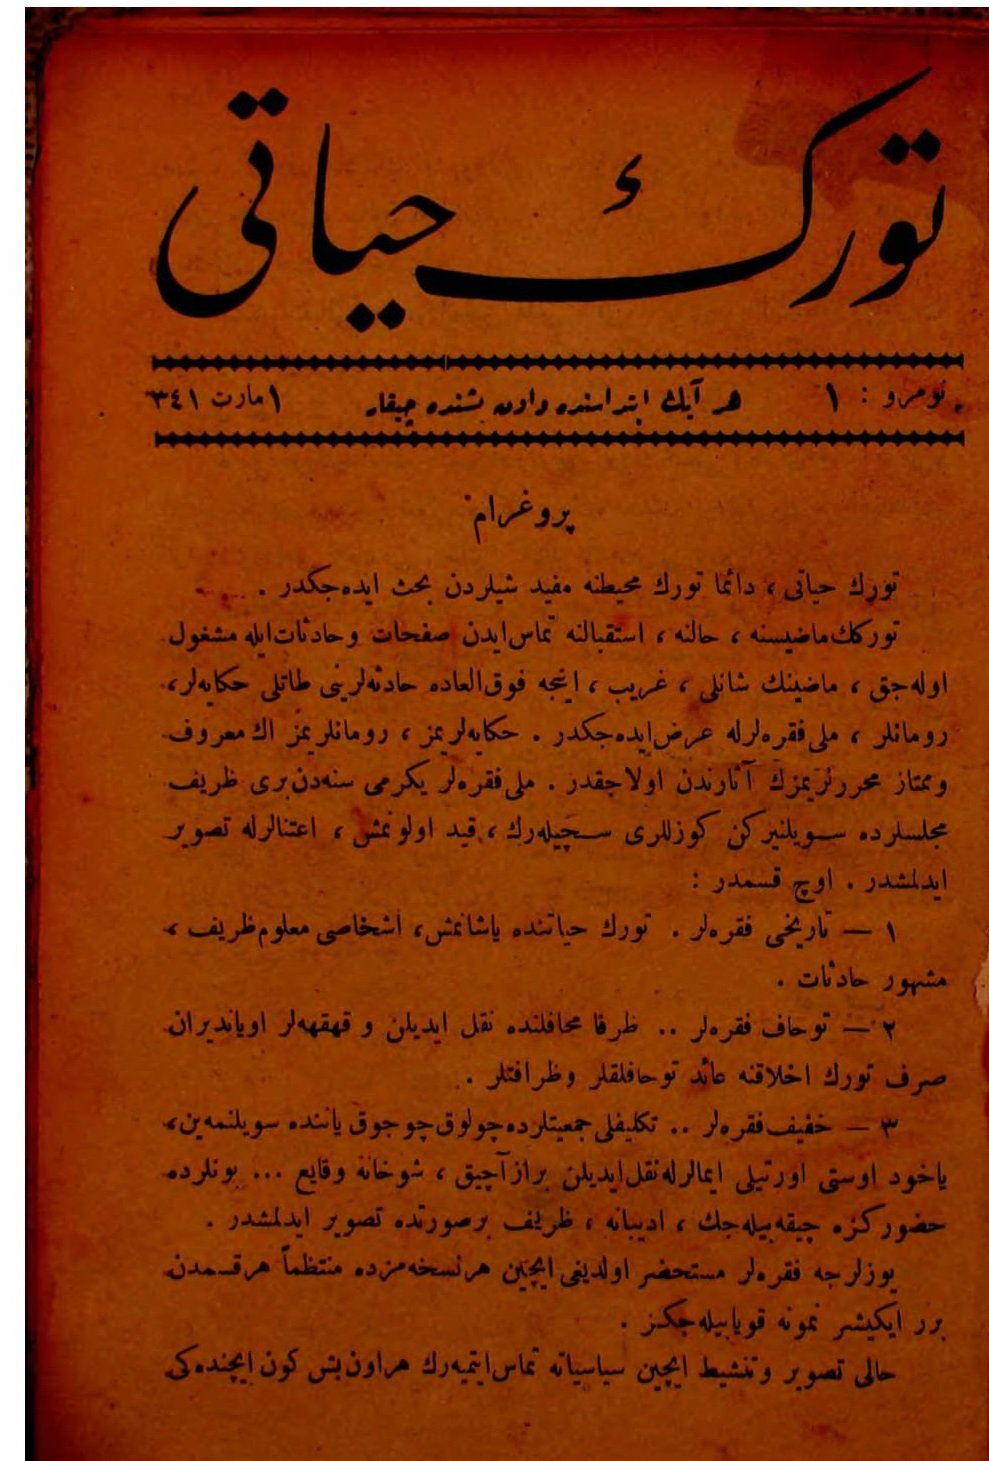 تورك حياتى
نومرو : ١
هر آيك ابتداسنده و اون بشنده چيقار
١ مارت ٣٤١
پروغرام
تورك حياتى ، دائما تورك محيطنه مفيد شيلردن بحث ايده جكدر .
توركك ماضيسنه ، حالنه ، استقبالنه تماس ايدن صفحات و حادثات ايله مشغول
اوله جق ، ماضينك شانلى ، غريب ، اينجه فوق العاده حادثه لرينى طاتلى حكايه لر ،
رومانلر ، ملى فقره لرله عرض ايده جكدر . حكايه لريمز ، رومانلريمز اك معروف
و ممتاز محررلريمزك آثارندن اولاجقدر . ملى فقره لر يكرمى سنه دن برى ظريف
مجلسلرده سويلنيركن كوزللرى سچيله رك ، قيد اولونمش ، اعتنالرله تصوير
ايدلمشدر . اوچ قسمدر :
١ — تاريخى فقره لر . تورك حياتنده ياشانمش ، اشخاصى معلوم ظريف ،
مشهور حادثات .
٢ — توحاف فقره لر .. ظرفا محافلنده نقل ايديلن و قهقهه لر اوياندیران
صرف تورك اخلاقنه عائد توحافلقلر و ظرافتلر .
٣ — خفيف فقره لر .. تكليفلى جمعيتلرده چولوق چوجوق ياننده سويلنمه ين ،
ياخود اوستى اورتيلى ايمالرله نقل ايديلن براز آچيق ، شوخانه وقايع ... بونلرده
حضوركزه چيقه بيله جك ، اديبانه ، ظريف برصورتده تصوير ايدلمشدر .
يوزلرجه فقره لر مستحضر اولديغى ايچين هر نسخه مزده منتظماً هر قسمدن
برر ايكيشر نمونه قويابيله جكز .
حالى تصوير و تنشيط ايچين سياسياته تماس ايتميه رك هر اون بش كون ايچنده كى